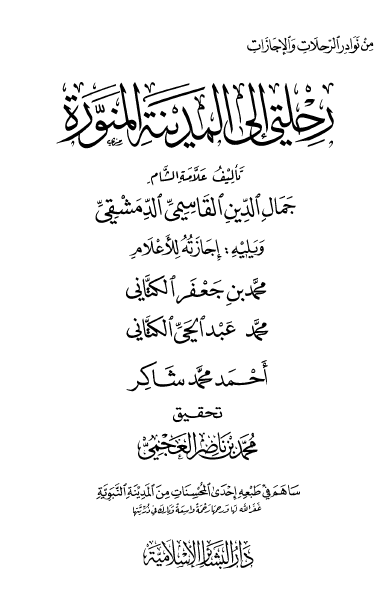 مِن نَوادِر الرّحلَاتِ وَالإجَازَاتِ
رِحْلَتِي إِلَى المَدِينَةِ المُنَوَّرَةِ
تَأليفُ عَلَّامَةِ الشَّام
جَمَالِ الدِّينِ القَاسِمِيِّ الدِّمَشْقِيِّ
وَيَلِيهِ : إِجَازَتُهُ لِلأَعْلَامِ
مُحَمَّد بن جَعْفَر الكَتَّانِي
مُحَمَّد عَبْد الحَيِّ الكَتَّانِي
أَحْمَد مُحَمَّد شَاكِر
تحقيق
مُحَمَّد بن نَاصِر العَجْمِيّ
سَاهَمَ فِي طَبْعِهِ إِحْدَى المُحْسِنَاتِ مِنَ المَدِيْنَةِ النَّبَوِيَّةِ
غَفَرَ اللهُ لَهَا وَرَحِمَهَا رَحْمَةً وَاسِعَةً وَبَارَكَ فِي ذُرِّيَّتِهَا
دَارُ البَشَائِرِ الإِسْلَامِيَّة